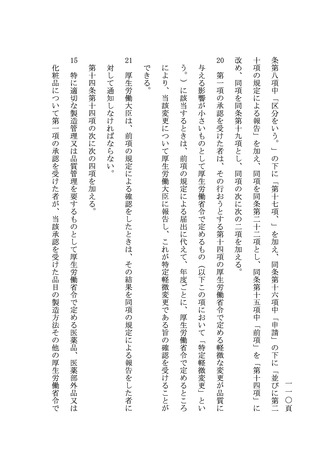 一一〇頁
条第八項中「区分をいう。」の下に「第十七項、」を加え、同条第十六項中「申請」の下に「並びに第二
十項の規定による報告」を加え、同項を同条第二十二項とし、同条第十五項中「前項」を「第十四項」に
改め、同項を同条第十九項とし、同項の次に次の二項を加える。
20 第一項の承認を受けた者は、その行おうとする第十四項の厚生労働省令で定める軽微な変更が品質に
与える影響が小さいものとして厚生労働省令で定めるもの（以下この項において「特定軽微変更」とい
う。）に該当するときは、前項の規定による届出に代えて、年度ごとに、厚生労働省令で定めるところ
により、当該変更について厚生労働大臣に報告し、これが特定軽微変更である旨の確認を受けることが
できる。
21 厚生労働大臣は、前項の規定による確認をしたときは、その結果を同項の規定による報告をした者に
対して通知しなければならない。
第十四条第十四項の次に次の四項を加える。
15 特に適切な製造管理又は品質管理を要するものとして厚生労働省令で定める医薬品、医薬部外品又は
化粧品について第一項の承認を受けた者が、当該承認を受けた品目の製造方法その他の厚生労働省令で